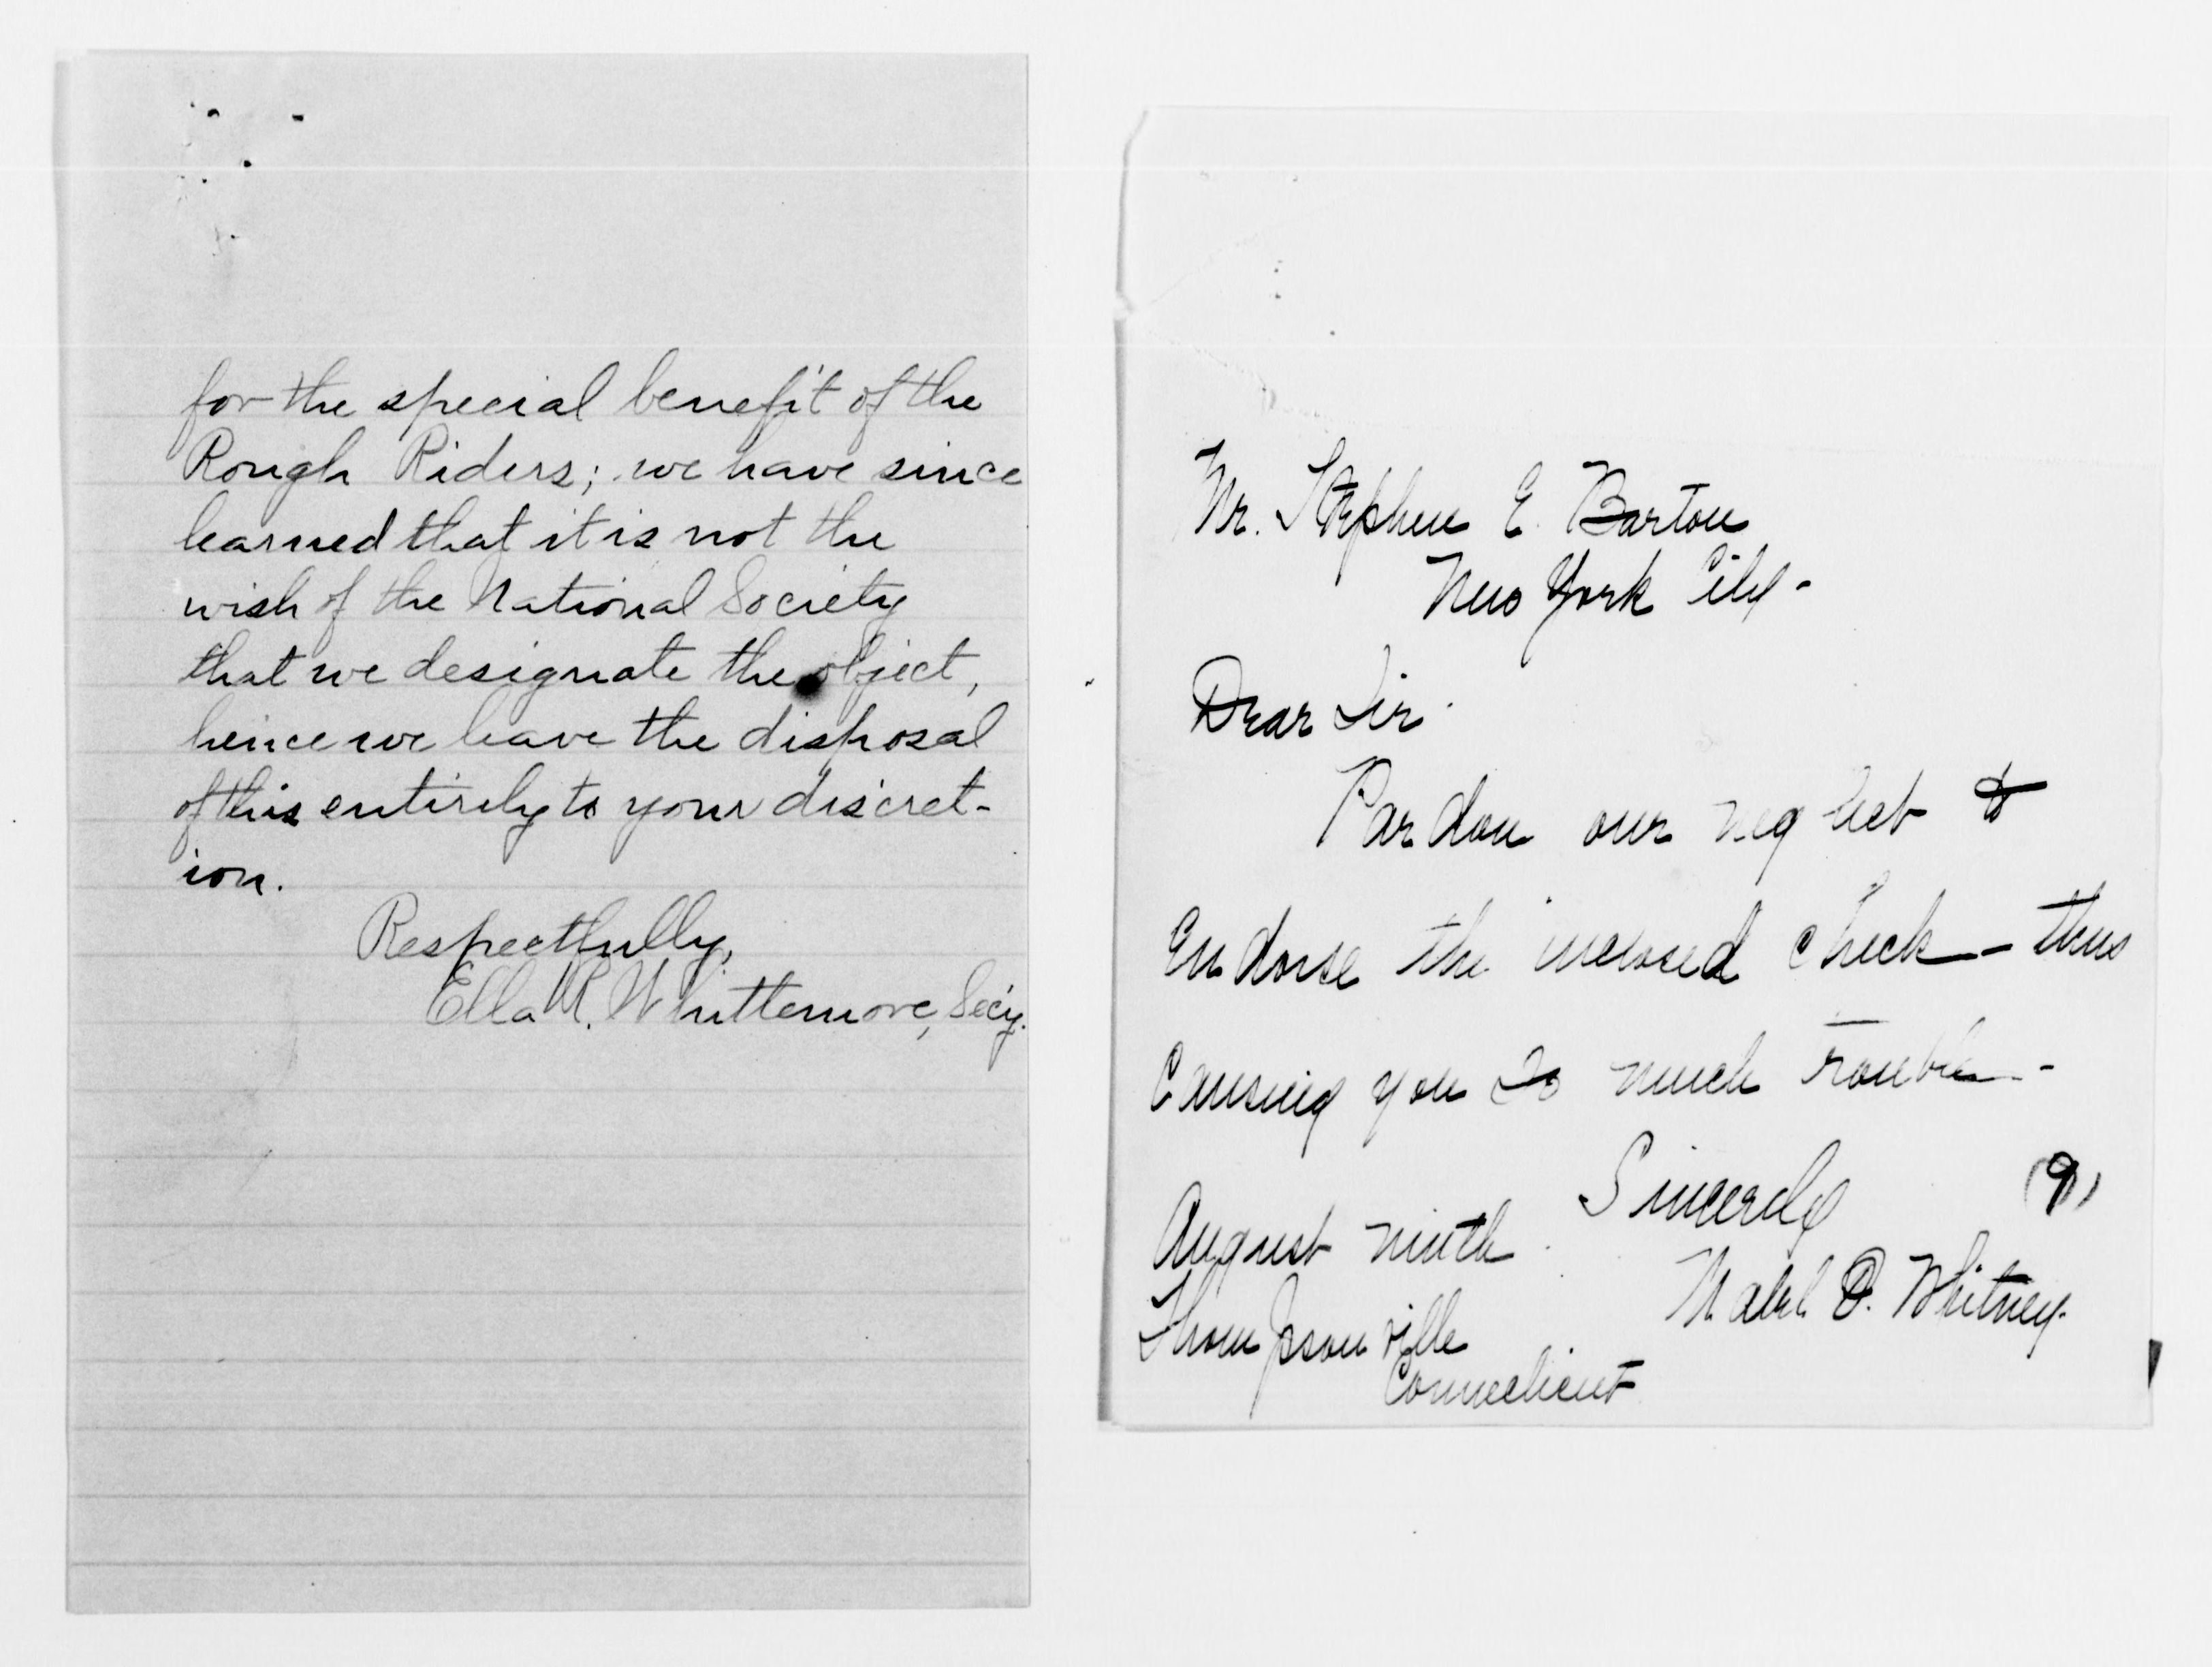 for the special benefit of the
Rough Riders; we have since
learned that it is not the
wish of the National Society
that we designate the object,
hence we leave the disposal
of this entirely to your discret-
ion.
Respectfully,
Ella R. Whittemore, Sec'y.
Mr. Stephen E. Barton
New York City -
Dear Sir.
Pardon our neglect to
Endorse the inclosed check - thus
Causing you so much trouble -
Sincerely
(9)
August ninth.
Mabel O. Whitney.
Thompsonville
Connecticut